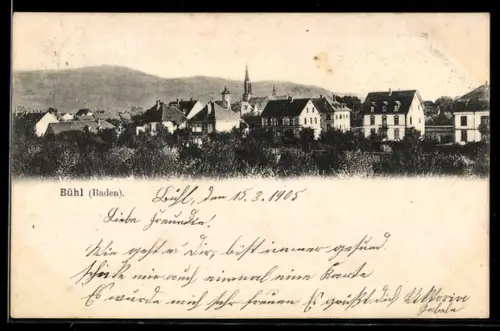 Bühl (Baden).
Bühl, den 15.3.1905
Liebe Freundin!
Wie geht es Dir, bist immer gesund
schicke mir auch einmal eine Karte
Es würde mich sehr freuen Es grüßt dich Viktoria